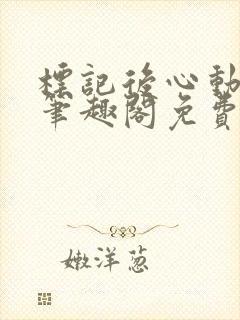 標記後心動
筆趣閣免費
嫩洋蔥